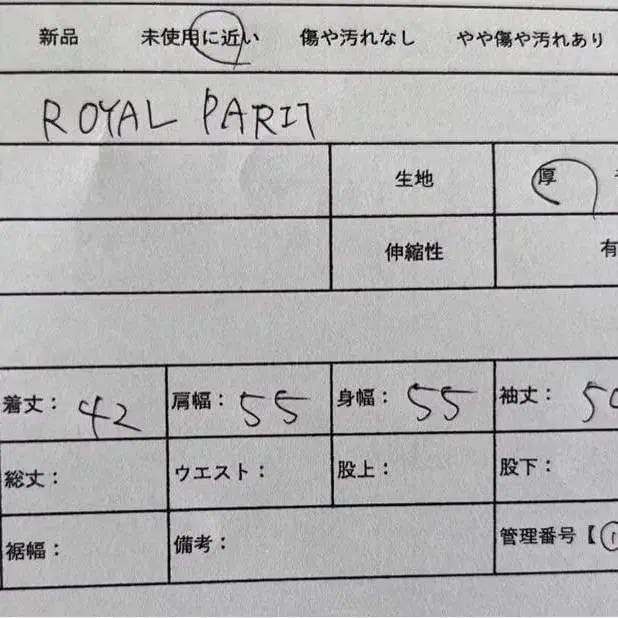 新品 未使用に近い 傷や汚れなし やや傷や汚れあり
ROYAL
生地 厚
伸縮性 有
着丈: 42 肩幅: 55 身幅: 55 袖丈:
総丈: ウエスト: 股上: 股下:
裾幅: 備考: 管理番号【